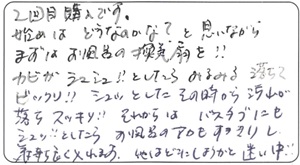 2回目購入です。
始めは どうなのかな? と 思いながら
まずは お風呂の 換気扇を!!
カビが シュシュ!!としたら みるみる 落ちて
ビックリ!! シュッ としたその時から 汚れが
落ち スッキリ!! それからは バスタブにも
シュッ!!としたら お風呂のアカもすっきりし
気持ち良く入れます。他はどこにしようかと 迷い中!!